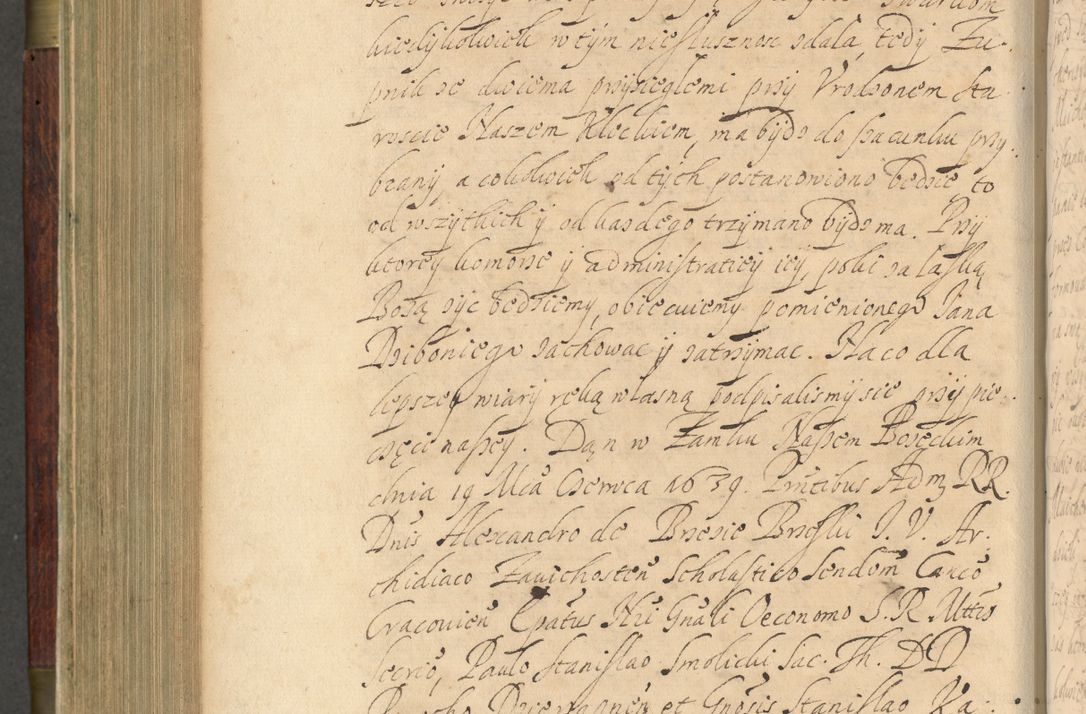 kiedykolwiek w tym niesłusznosc zdała, tedy Zu-
pnik ze dwiema przysięglemi przy Vrodzonem Sta
roscie Naszem Kłeckiem, ma bydz do szacunku przy-
brany a cokolwiek od tych postanowiono bedzie to
od wszytkich y od kazdego trzymano bydz ma. Przy
ktorey komorze y administratiey iey, poki za łaską
Bozą zyc bedziemy, obiecuiemy pomienionego Jana
Dziboniego zachowac y zatrzymac. Na co dla
lepszey wiary ręką własną podpisalismy sie przy pie-
częci naszey. Dan w Zamku Naszem Bozeckim
dnia 19 Mca Czerwca 1639. Pntibus Adm RR.
Dnis Alexandro de Brzezie Brzeski I. V. Ar-
chidiaco Zauichosten Scholastico Sendom Canco
Cracouien Epatus Hui Gnali Oeconomo S. R. Mttis
Secrio, Paulo Stanislao Smolicki Sac. Th. DD
et Gnosis Stanislao Ka-